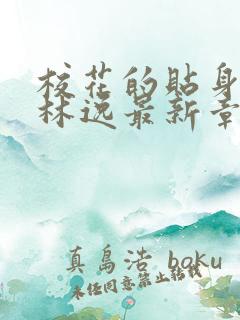 校花的贴身
林逸最新章
真島浩 baku
未经同意禁止转载